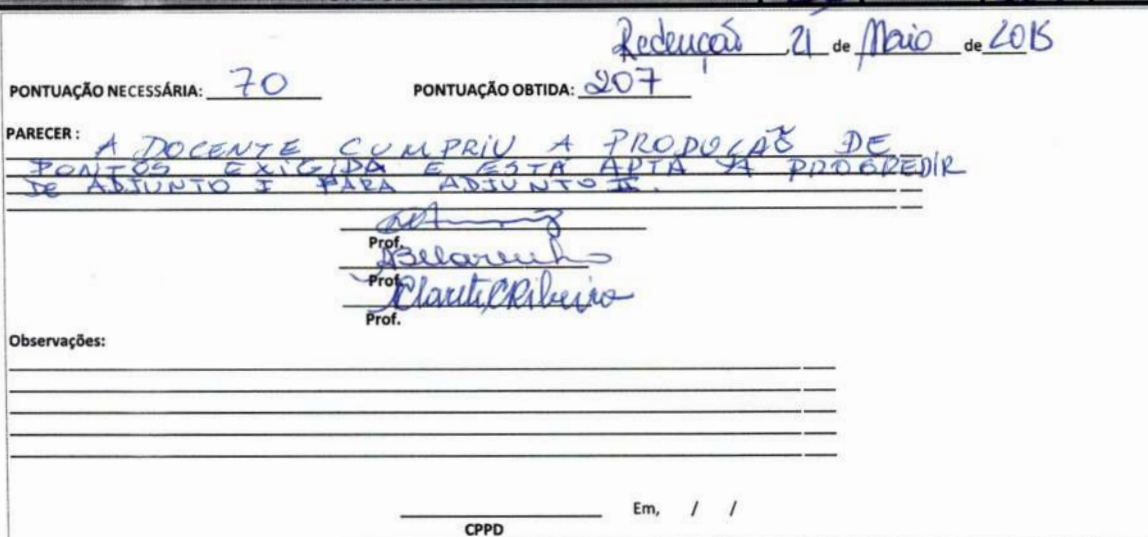 Redenção, 21 de Maio de 2015
PONTUAÇÃO NECESSÁRIA: 70 PONTUAÇÃO OBTIDA: 207
PARECER: A DOCENTE CUMPRIU A PRODUÇÃO DE
PONTOS EXIGIDA E ESTÁ APTA A PROGREDIR
DE ADJUNTO I PARA ADJUNTO II.
Prof.
Prof.
Ribeiro
Prof.
Observações:
Em, / /
CPPD